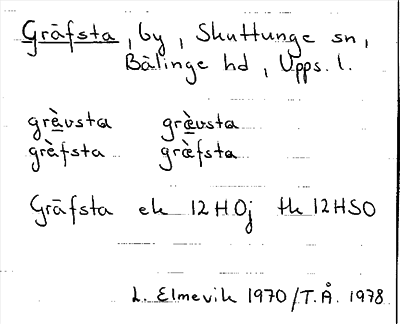 Gräfsta, by, Skuttunge sn,
Bälinge hd, Upps. l.
grèvsta græ̀vsta
grèfsta græ̀fsta
Gräfsta ek 12 H Oj tk 12 HSO
L. Elmevik 1970/T.Å. 1978